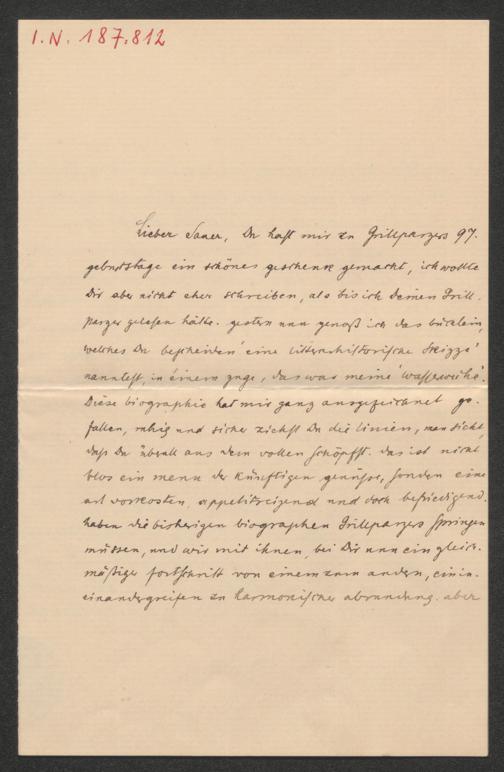 I.N. 187.812
Lieber Sauer, Du hast mir zu Grillparzers 97.
geburtstage ein schönes geschenk gemacht, ich wollte
Dir aber nicht eher schreiben, als bis ich deinen Grill-
parzer gelesen hätte. gestern nun genoß ich das büchlein,
welches Du bescheiden 'eine litterarhistorische Skizze'
nanntest, in einem zuge, das war meine 'wasserweihe'.
Diese biographie hat mir ganz ausgezeichnet ge-
fallen, ruhig und sicher ziehst Du die linien, man sieht,
daß Du überall aus dem vollen schöpfst. das ist nicht
blos ein menu der künftigen genüsse, sondern eine
art vorkosten, appetitreizend und doch befriedigend.
haben die bisherigen biographen Grillparzers springen
müssen, und wir mit ihnen, bei Dir nun ein gleich-
mäßiger fortschritt von einem zum andern, ein in-
einandergreifen zu harmonischer abrundung. aber